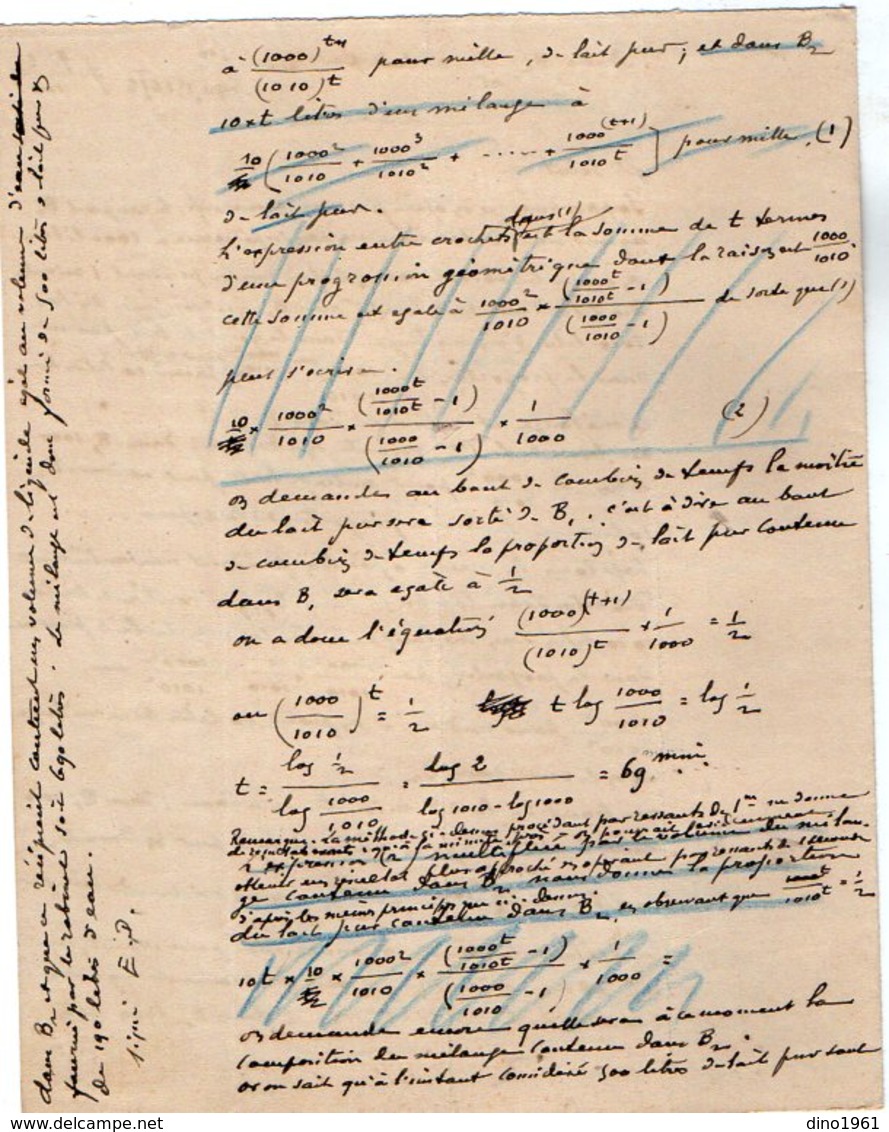 à (1000)^(t+1) / (1010)^t pour mille, de lait pur; et dans B2
10 × t litres d'un mélange à
10/t² ( 1000²/1010 + 1000³/1010² + ...... + 1000^(t+1)/1010^t ] pour mille, (1)
de lait pur.
L'expression entre crochets dans (1) est la somme de t termes
d'une progression géométrique dont la raison est 1000/1010.
cette somme est egale à 1000²/1010 × (1000^t/1010^t - 1) / (1000/1010 - 1) de sorte que (1)
peut s'ecrire.
10/t² × 1000²/1010 × (1000^t/1010^t - 1) / (1000/1010 - 1) × 1/1000 (2)
on demande au bout de combien de temps la moitié
du lait pur sera sorti de B1, c'est à dire au bout
de combien de temps la proportion de lait pur contenu
dans B1 sera egale à 1/2
on a donc l'équation (1000)^(t+1) / (1010)^t × 1/1000 = 1/2
ou (1000/1010)^t = 1/2 t log 1000/1010 = log 1/2
t = log 1/2 / log 1000/1010 = log 2 / log 1010 - log 1000 = 69 min
Remarque: La méthode ci-dessus procédant par ressauts de 1m ne donne
de résultat exact qu'à la minute près on pourrait
l'expression (2) multiplié par le volume du mélan-
obtenir un résultat plus approché en opérant par ressauts de 1 seconde
ge contenu dans B2 nous donne la proportion
d'après les mêmes principes que ci-dessus.
du lait pur contenu dans B2, en observant que 1000^t/1010^t = 1/2
10t × 10/t² × 1000²/1010 × (1000^t/1010^t - 1) / (1000/1010 - 1) × 1/1000 =
on demande encore quelle sera à ce moment la
composition du mélange contenu dans B2.
or on sait qu'à l'instant considéré 500 litres de lait pur sont
dans B2 et que ce récipient contient un volume de liquide égal au volume d'eau
fourni par le robinet soit 690 litres. Le mélange est donc formé de 500 litres de lait pur et
de 190 litres d'eau.
signé E.P.
dino1961